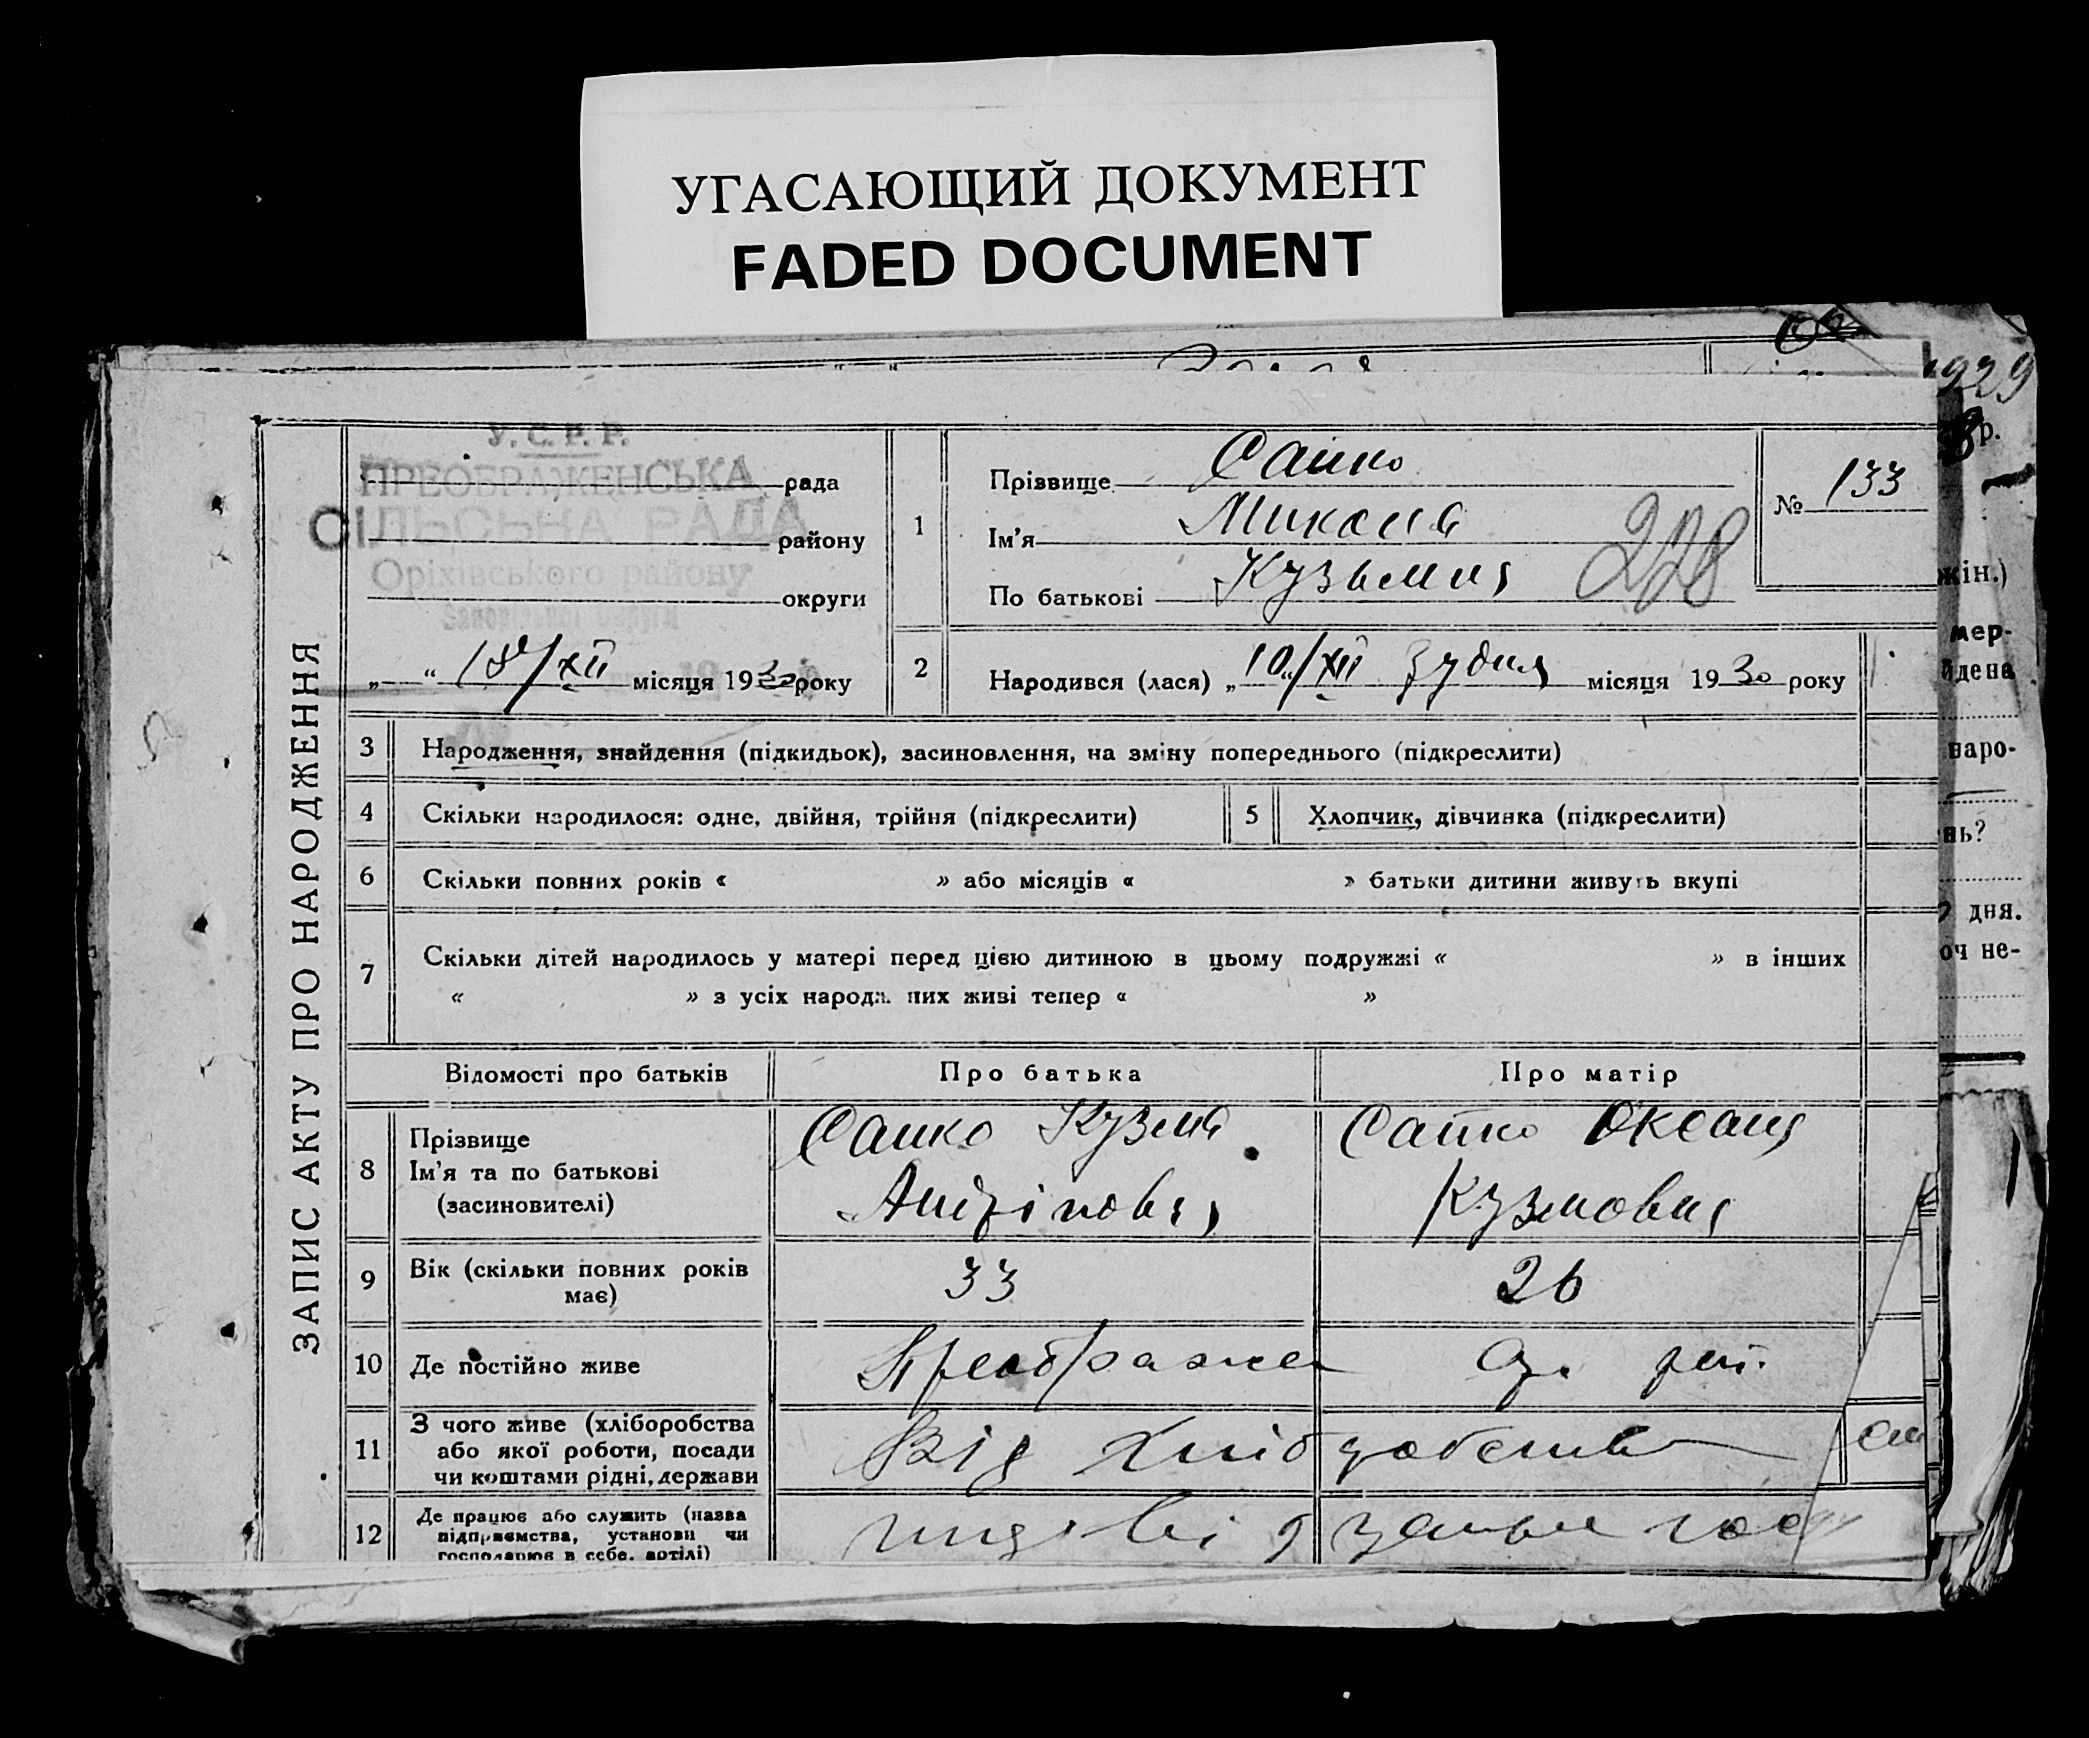 УГАСАЮЩИЙ ДОКУМЕНТ
FADED DOCUMENT
1929
р.
ЗАПИС АКТУ ПРО НАРОДЖЕННЯ
У. С. Р. Р.
ПРЕОБРАЖЕНСЬКА рада
СІЛЬСЬКА РАДА району
Оріхівського району
Запорізької округи
округи
„ “ 18/XII місяця 1930 року
1 Прізвище Сапко
Ім'я Микола
По батькові Кузьмич
228
№ 133
2 Народився (лася) „10“/XII грудня місяця 1930 року
3 Народження, знайдення (підкидьок), засиновлення, на зміну попереднього (підкреслити)
4 Скільки народилося: одне, двійня, трійня (підкреслити) 5 Хлопчик, дівчинка (підкреслити)
6 Скільки повних років « » або місяців « » батьки дитини живуть вкупі
7 Скільки дітей народилось у матері перед цією дитиною в цьому подружжі « » в інших
« » з усіх народж. них живі тепер « »
Відомості про батьків Про батька Про матір
8 Прізвище
Ім'я та по батькові
(засиновителі)
Сапко Кузма
Сапко Оксана
Кузмовна
9 Вік (скільки повних років
має) 33 26
10 Де постійно живе Преображен Ор. рай.
11 З чого живе (хліборобства
або якої роботи, посади
чи коштами рідні, держави
Від хліборобства
12 Де працює або служить (назва
підприємства, установи чи
господарює в себе, артілі)
жін.)
мер-
йдена
наро-
нь?
дня.
оч не-